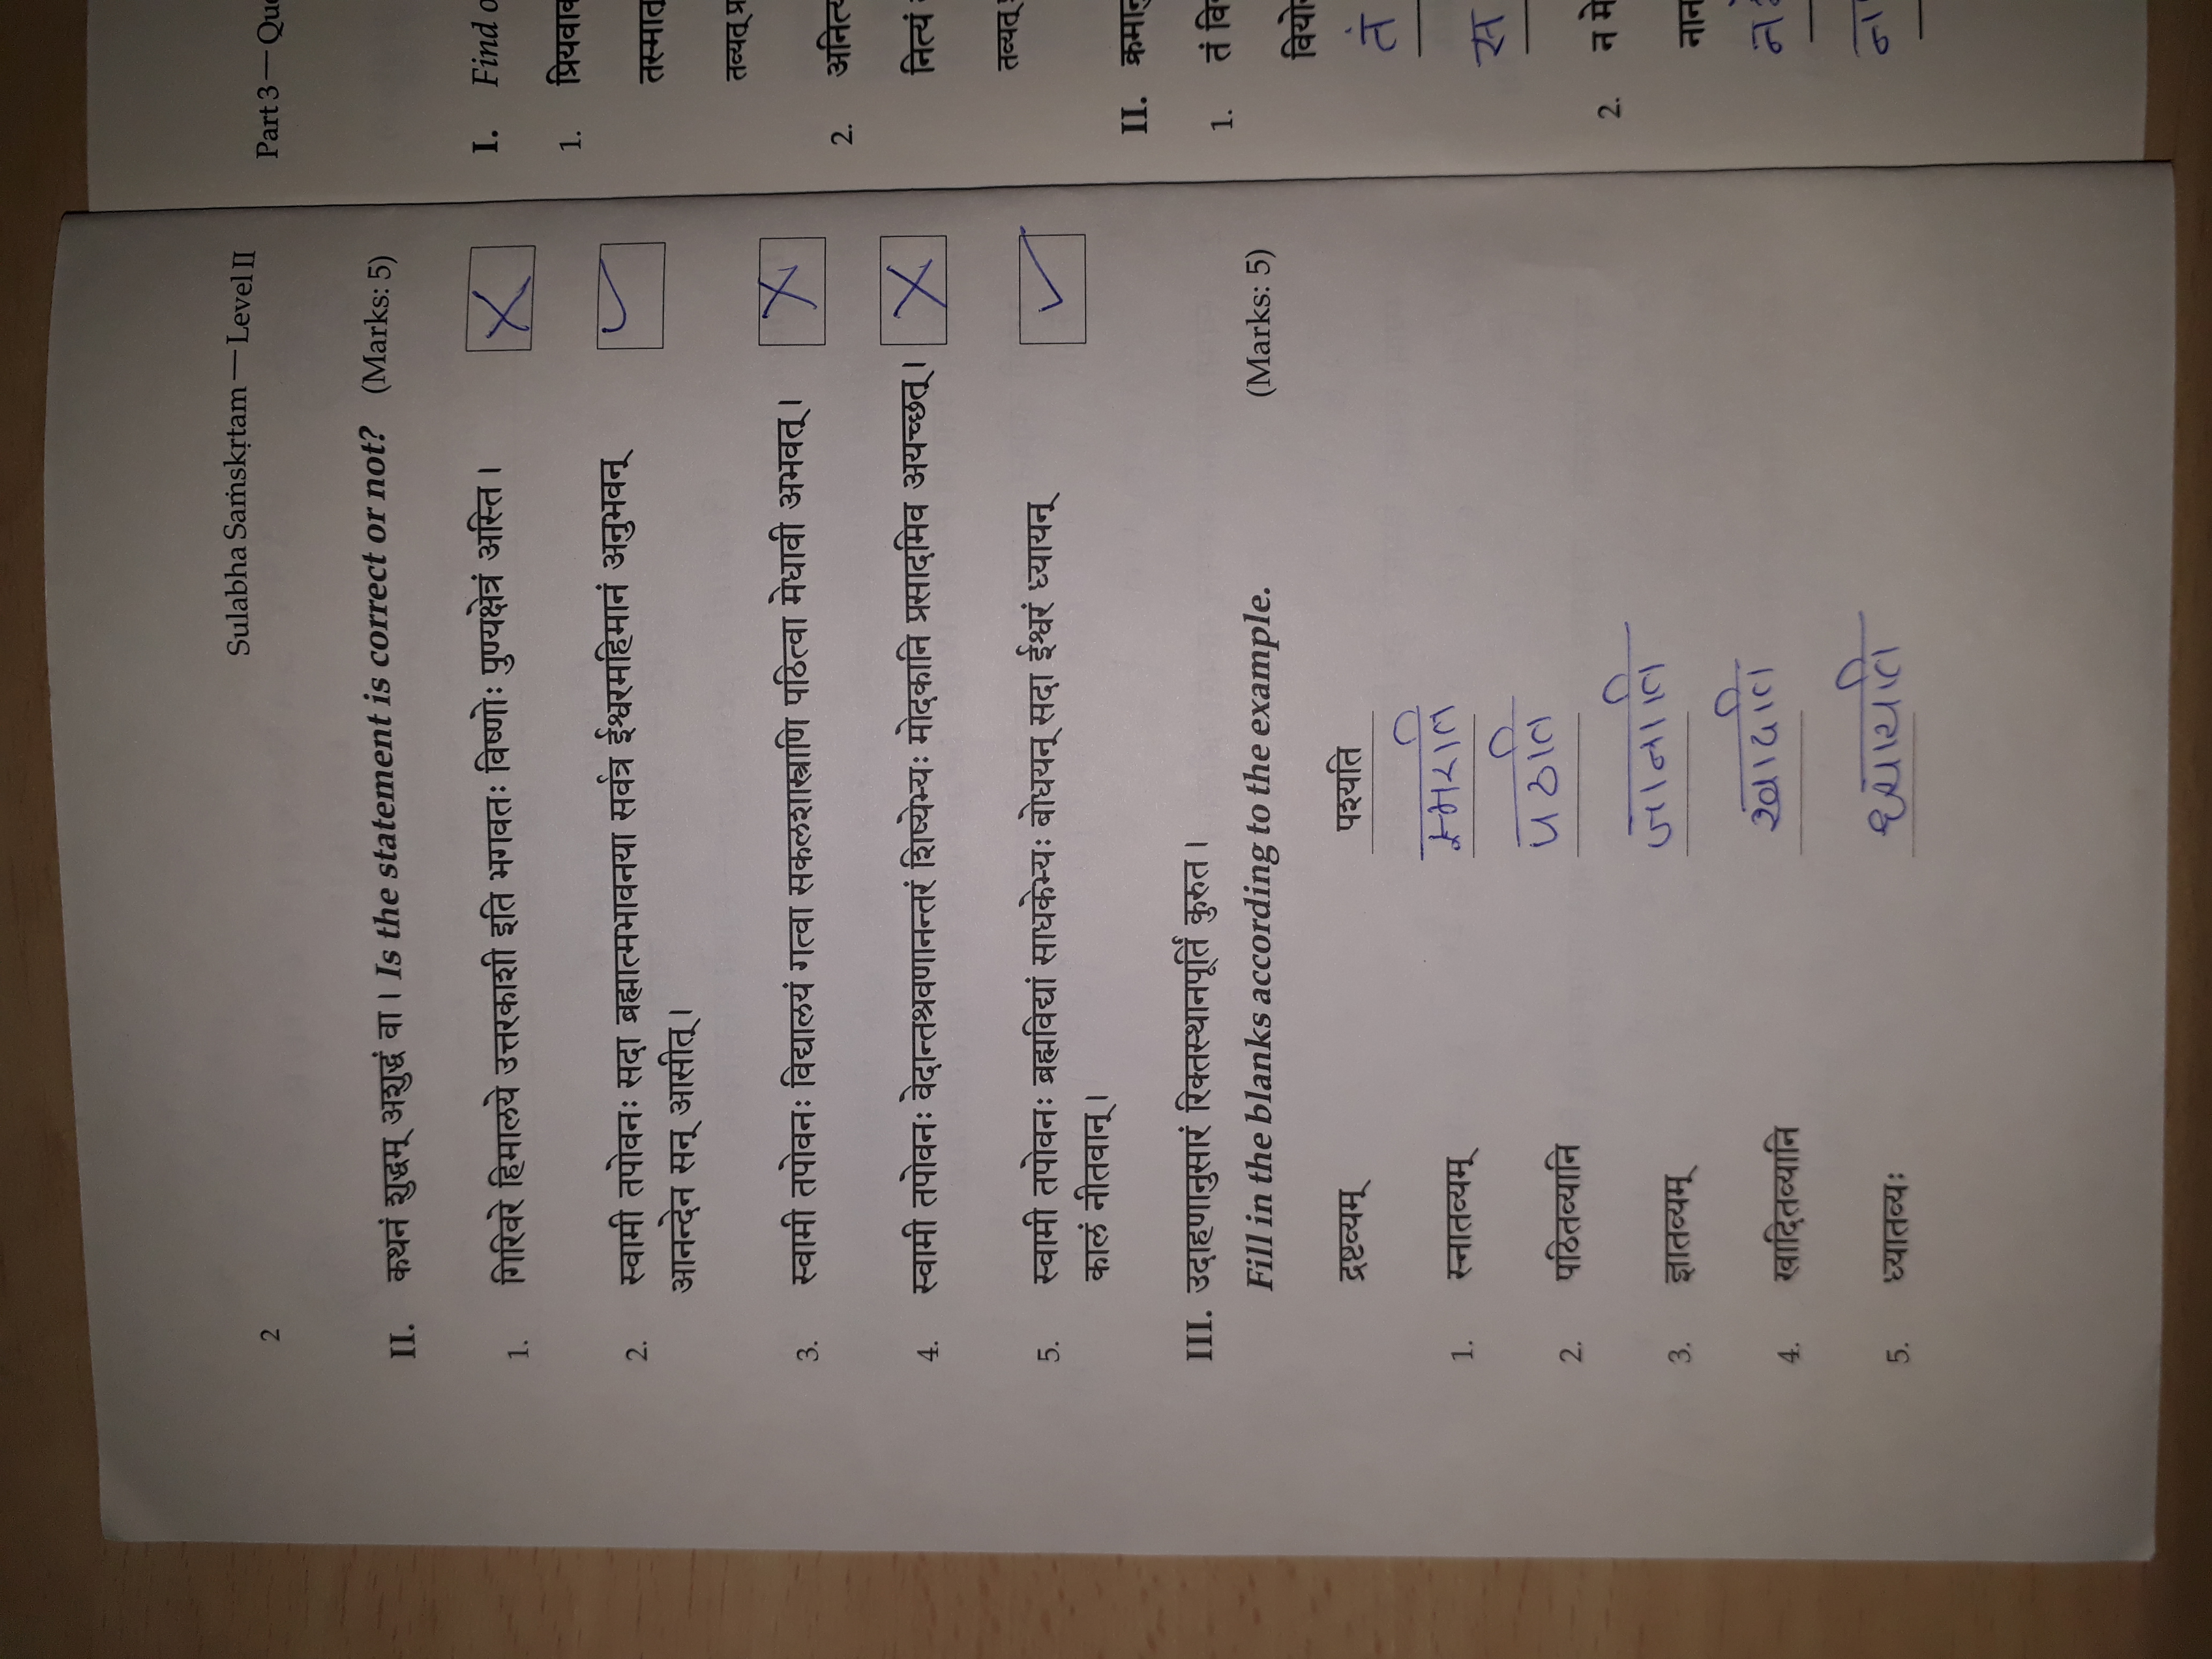 2
Sulabha Saṁskṛtam — Level II
II. कथनं शुद्धम् अशुद्धं वा । Is the statement is correct or not? (Marks: 5)
1. गिरिवरे हिमालये उत्तरकाशी इति भगवतः विष्णोः पुण्यक्षेत्रं अस्ति । X
2. स्वामी तपोवनः सदा ब्रह्मात्मभावनया सर्वत्र ईश्वरमहिमानं अनुभवन् ✓
आनन्देन सन् आसीत् ।
3. स्वामी तपोवनः विद्यालयं गत्वा सकलशास्त्राणि पठित्वा मेधावी अभवत् । X
4. स्वामी तपोवनः वेदान्तश्रवणानन्तरं शिष्येभ्यः मोदकानि प्रसादमिव अयच्छत् । X
5. स्वामी तपोवनः ब्रह्मविद्यां साधकेभ्यः बोधयन् सदा ईश्वरं ध्यायन् ✓
कालं नीतवान् ।
III. उदाहणानुसारं रिक्तस्थानपूर्ति कुरुत ।
Fill in the blanks according to the example. (Marks: 5)
द्रष्टव्यम् पश्यति
1. स्नातव्यम् स्मरति
2. पठितव्यानि पठति
3. ज्ञातव्यम् जानाति
4. खादितव्यानि खादति
5. ध्यातव्यः ध्यायति
Part 3 — Que
I. Find o
1. प्रियवाक
तस्मात्
तव्यत् प्र
2. अनित्य
नित्यं
तव्यत्
II. क्रमानु
1. तं वि
वियो
तं
स
2. न मे
नान